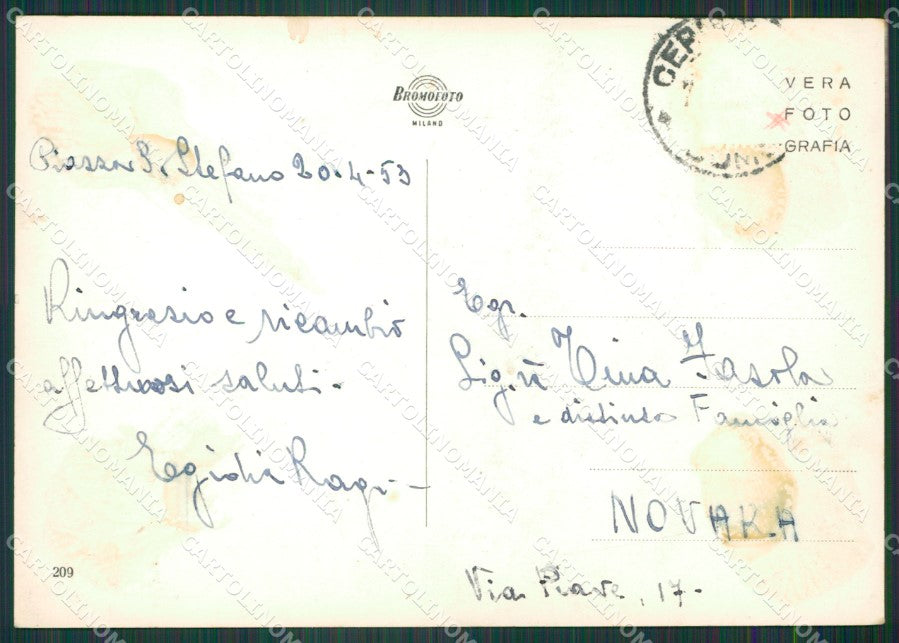 BROMOFOTO
MILANO
VERA
FOTO
GRAFIA
Piazza S. Stefano 20-4-53
Ringrazio e ricambio
affettuosi saluti -
Egidia
Egr.
Sig.na Tina Fasola
e distinta Famiglia
NOVARA
Via Piave, 17-
209
CARTOLINOMANIA